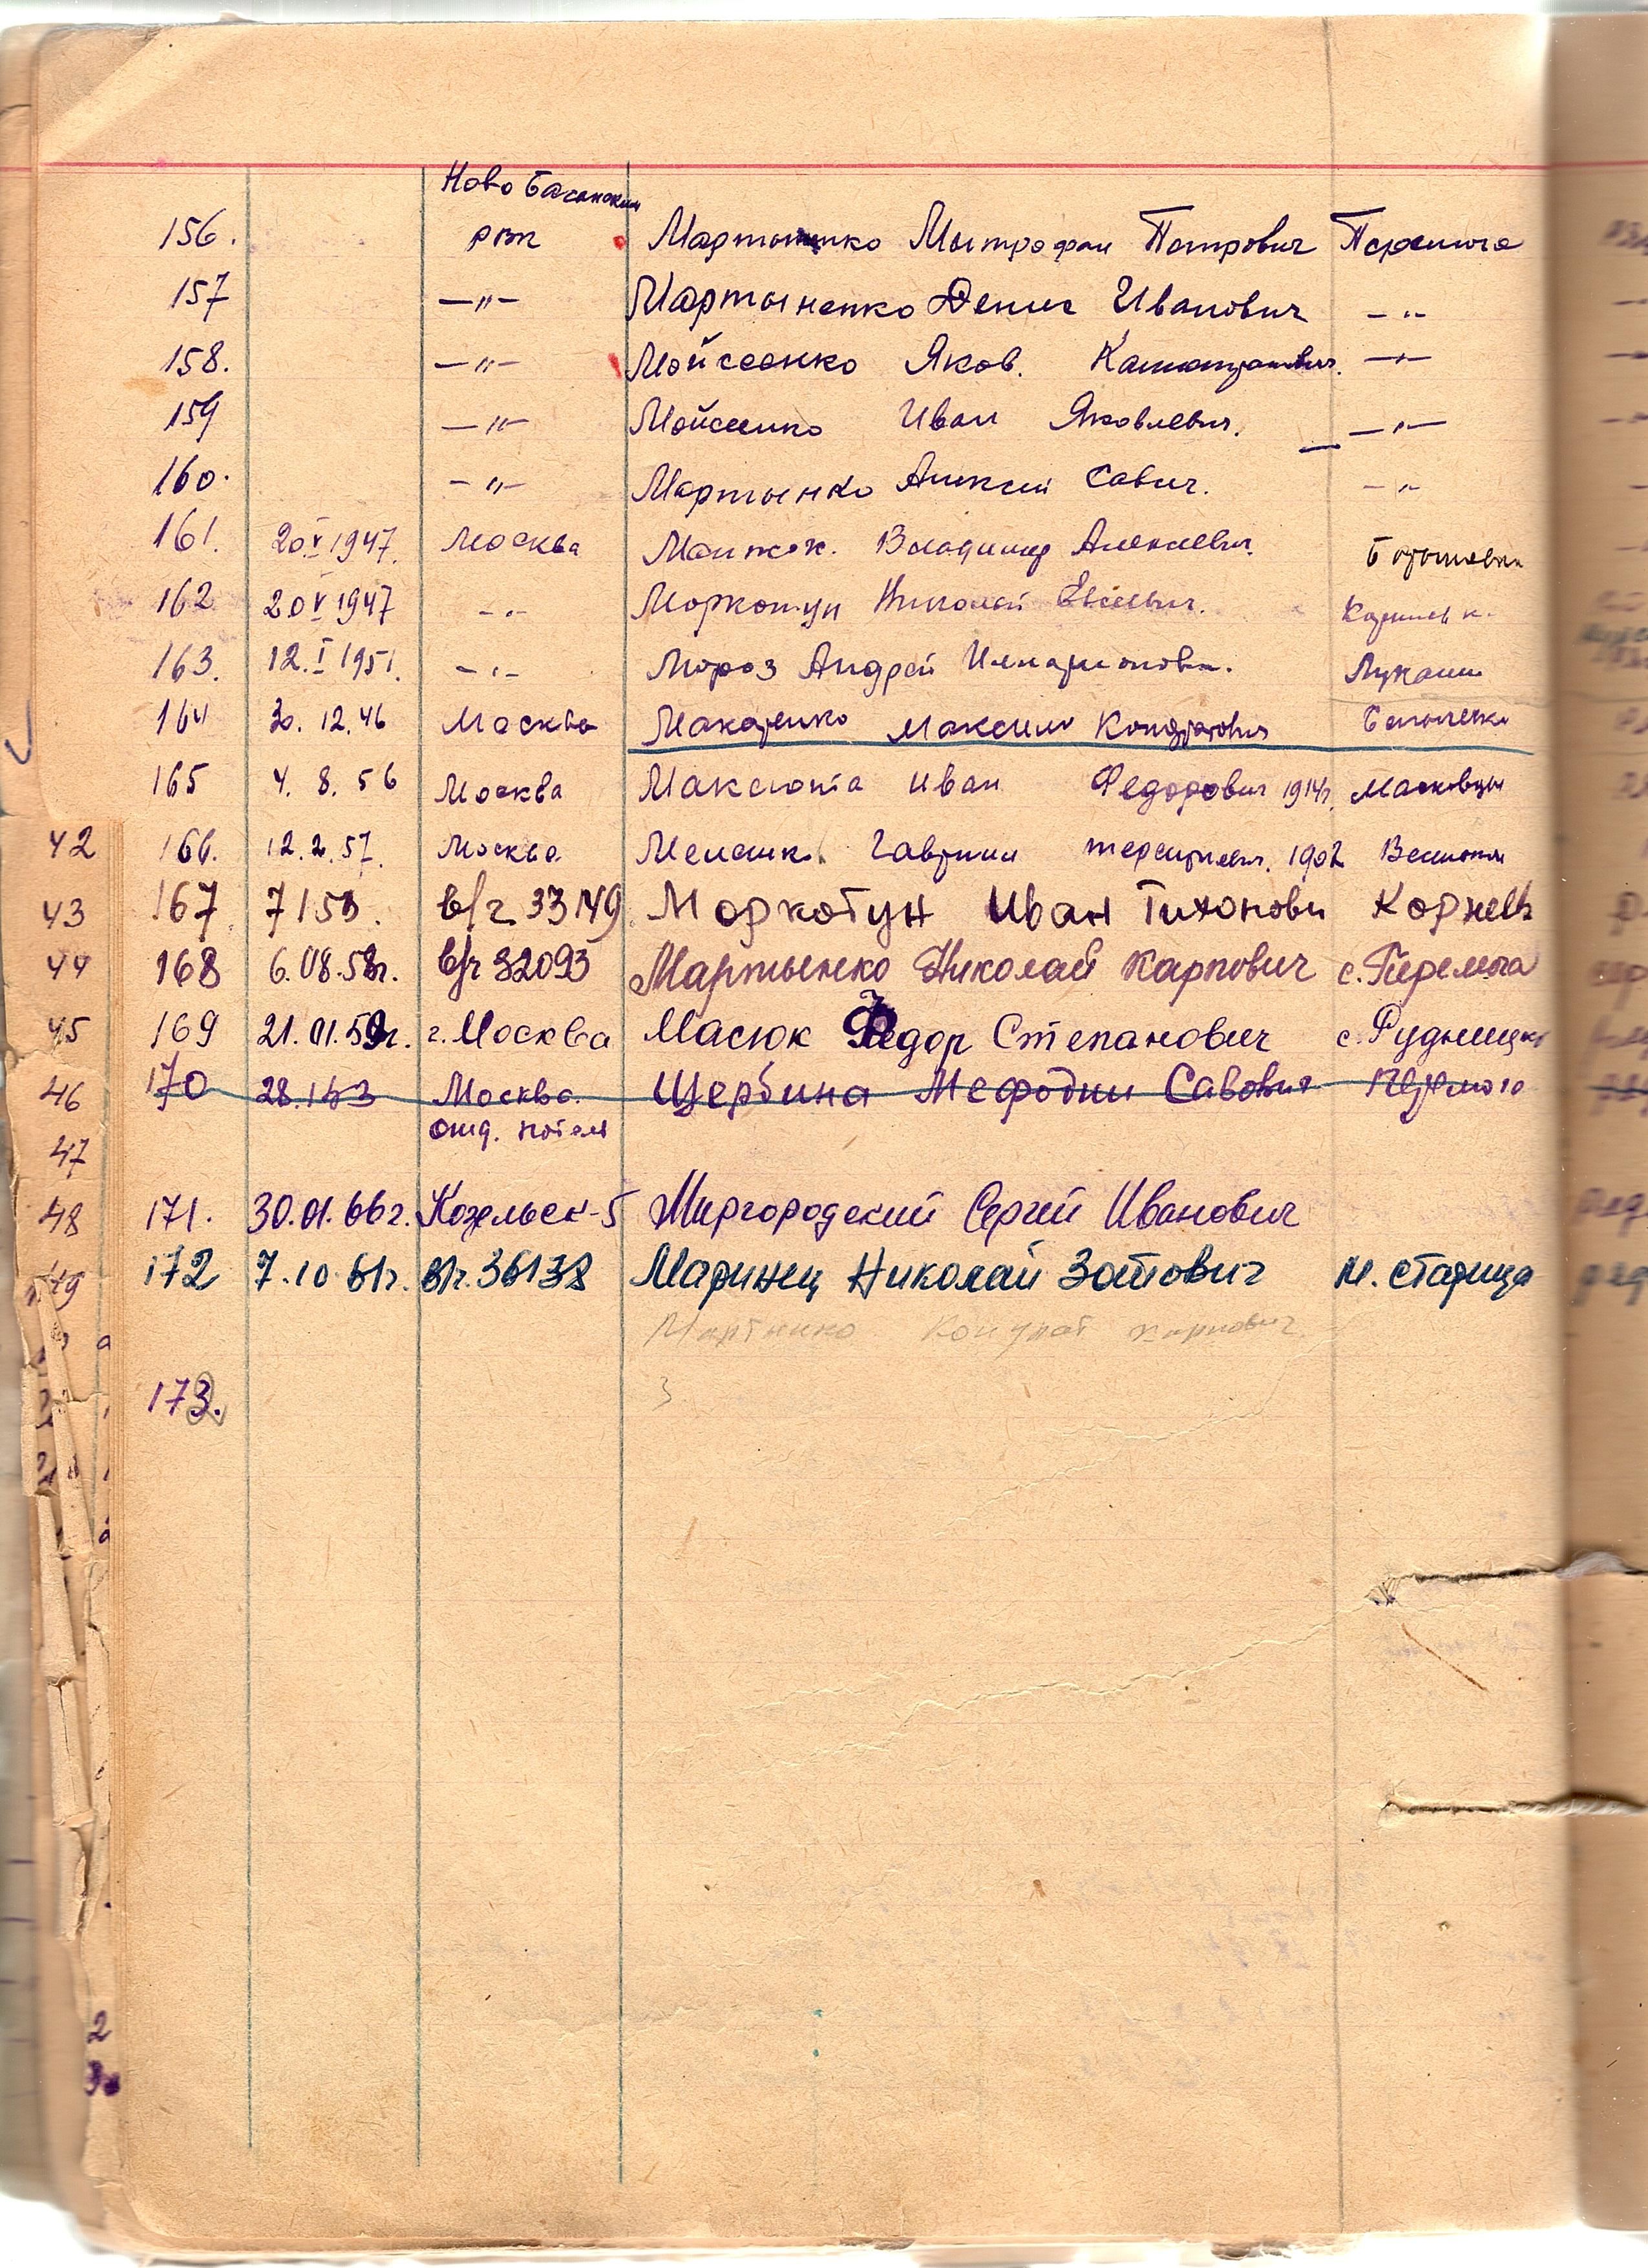 Ново Басанский
156. РВК Мартыненко Мытрофан Петрович Перемога
157 —"— Мартыненко Денис Иванович —"
158. —"— Мойсеенко Яков. —"—
159 —"— Мойсеенко Иван Яковлевич. —"—
160. —"— Мартынко Алексей Савич. —"—
161. 20 V 1947. Москва Владимир Алексеевич.
162 20 V 1947 —"— Моркотун Николай
163. 12. I 1951. —"— Мороз Андрей Илларионович. Лукаши
164 30. 12. 46 Москва Макаренко Максим Кондратович
165 4. 8. 56 Москва Максюта Иван Федорович 1914г. Масковцы
42 166. 12. 2. 57. Москва. Гаврил 1902
43 167 7 1 58. в/ч 33149 Моркотун Иван Тихонови
44 168 6.08.58г. в/ч 32093 Мартынко Николай Карпович с. Перемога
45 169 21.01.59г. г. Москва Масюк Федор Степанович с.
46 170 28.1 Москва. Щербина Мефодии Савович Перемога
отд.
47
48 171. 30.01.66г. Козельск-5 Миргородский Сергей Иванович
49 172 7.10 61г. в/ч. 36138 Маринец Николай Зотович м. Старица
Мартынко Кондрат Карпович
173. 3